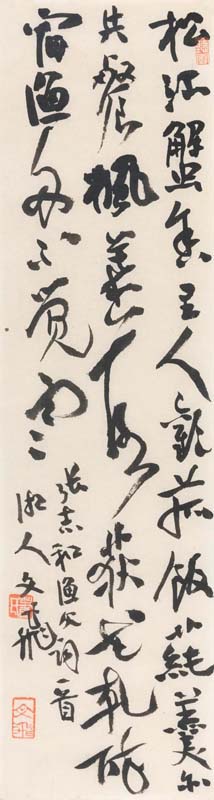 松江蟹舍主人歡菰飯蒓羹亦
共餐楓葉落荻花乾醉
宿漁舟不覺寒
張志和漁父詞一首
湘人文